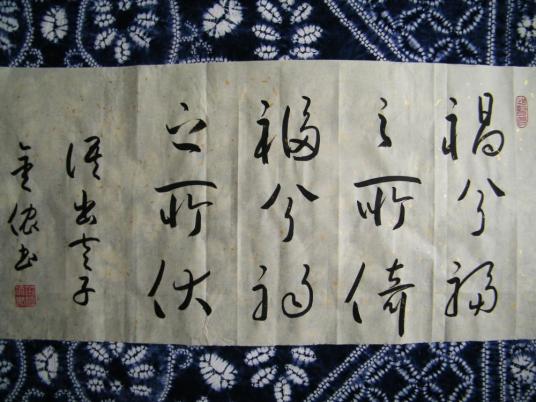 禍兮福
之所倚
福兮禍
之所伏
語出老子
書